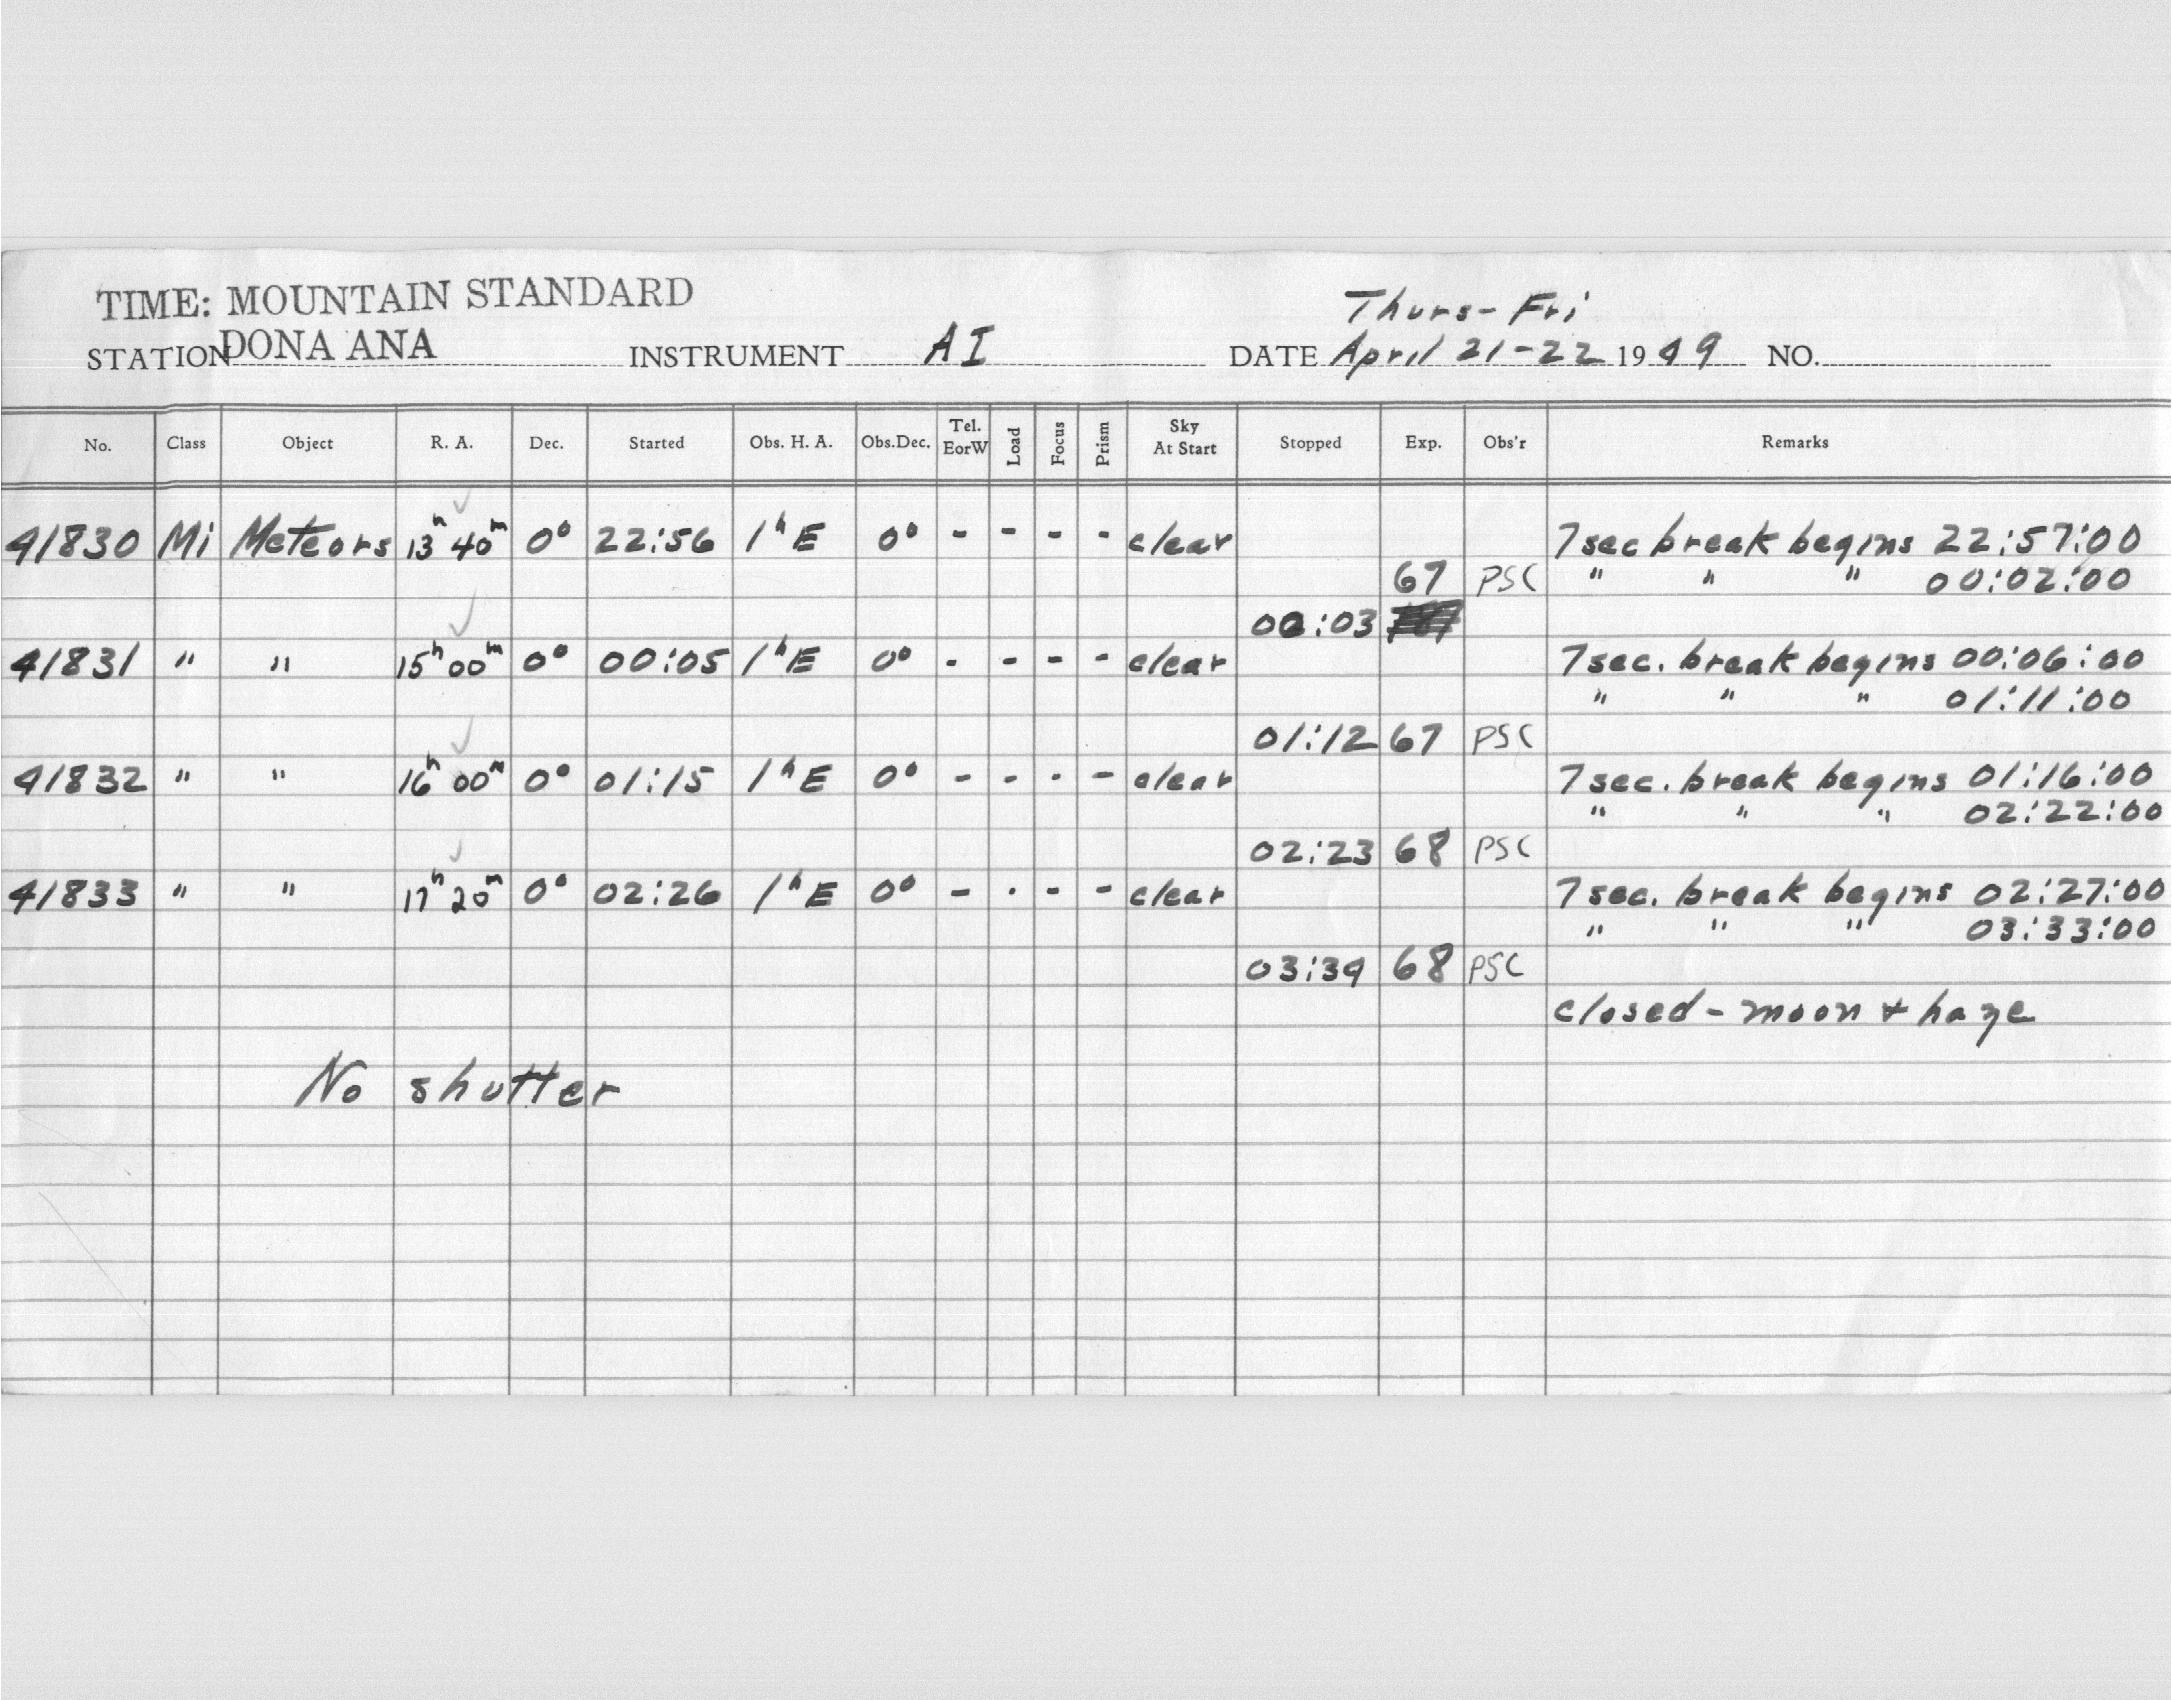 TIME: MOUNTAIN STANDARD
Thurs-Fri
STATION DONA ANA INSTRUMENT AI DATE April 21-22 1949 NO.
No. Class Object R. A. Dec. Started Obs. H. A. Obs.Dec. Tel. EorW Load Focus Prism Sky At Start Stopped Exp. Obs'r Remarks
41830 Mi Meteors 13h 40m 0° 22:56 1h E 0° - - - - clear 7 sec break begins 22:57:00
67 PSC " " " 00:02:00
00:03
41831 " " 15h 00m 0° 00:05 1h E 0° - - - - clear 7 sec. break begins 00:06:00
" " " 01:11:00
01:12 67 PSC
41832 " " 16h 00m 0° 01:15 1h E 0° - - - - clear 7 sec. break begins 01:16:00
" " " 02:22:00
02:23 68 PSC
41833 " " 17h 20m 0° 02:26 1h E 0° - - - - clear 7 sec. break begins 02:27:00
" " " 03:33:00
03:34 68 PSC
closed - moon + haze
No shutter